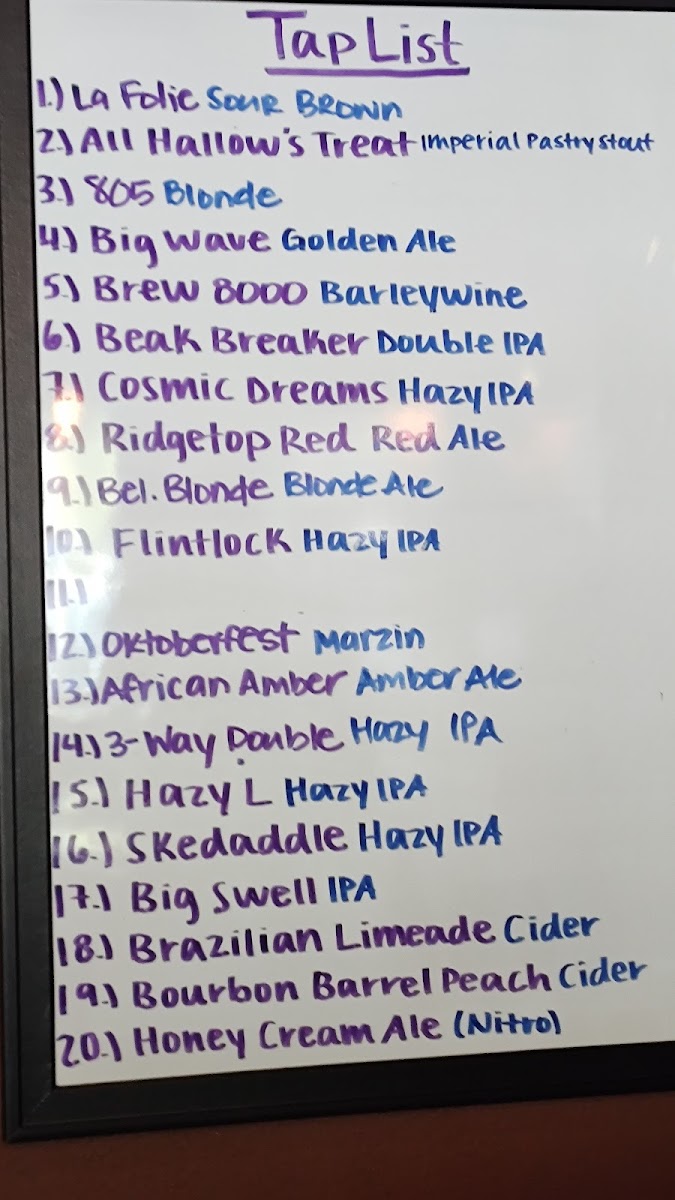 Tap List
1.) La Folie Sour Brown
2.) All Hallow's Treat Imperial Pastry stout
3.) 805 Blonde
4.) Big Wave Golden Ale
5.) Brew 8000 Barleywine
6.) Beak Breaker Double IPA
7.) Cosmic Dreams Hazy IPA
8.) Ridgetop Red Red Ale
9.) Bel. Blonde Blonde Ale
10.) Flintlock Hazy IPA
11.)
12.) Oktoberfest Marzin
13.) African Amber Amber Ale
14.) 3-Way Double Hazy IPA
15.) Hazy L Hazy IPA
16.) Skedaddle Hazy IPA
17.) Big Swell IPA
18.) Brazilian Limeade Cider
19.) Bourbon Barrel Peach Cider
20.) Honey Cream Ale (Nitro)